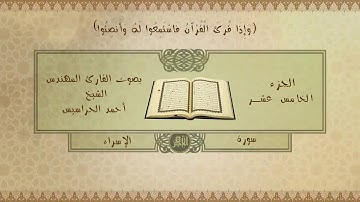 (وإذا قُرئ القُرآنُ فاستمعُوا لهُ وأنصتُوا)
الجزء
الخامس عشر
بصوت القارئ المهندس
الشيخ
أحمد الحراسيس
سورة
الإسراء